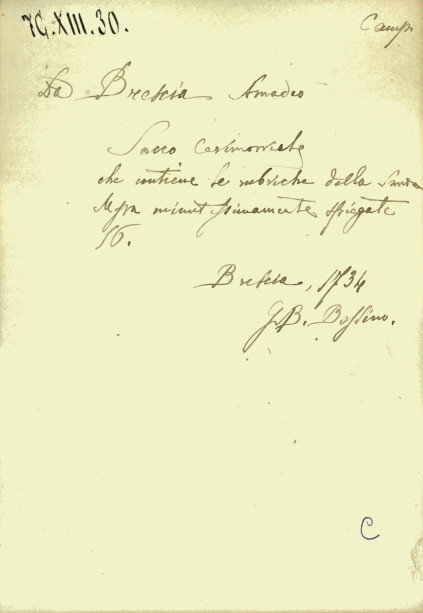 7G.XIII.30.
Camp.
Da Brescia Amadeo
Sacro Cerimoniale
che contiene le rubriche della Santa
Messa minutissimamente spiegate
16.
Brescia, 1734
G.B. Bossino.
C